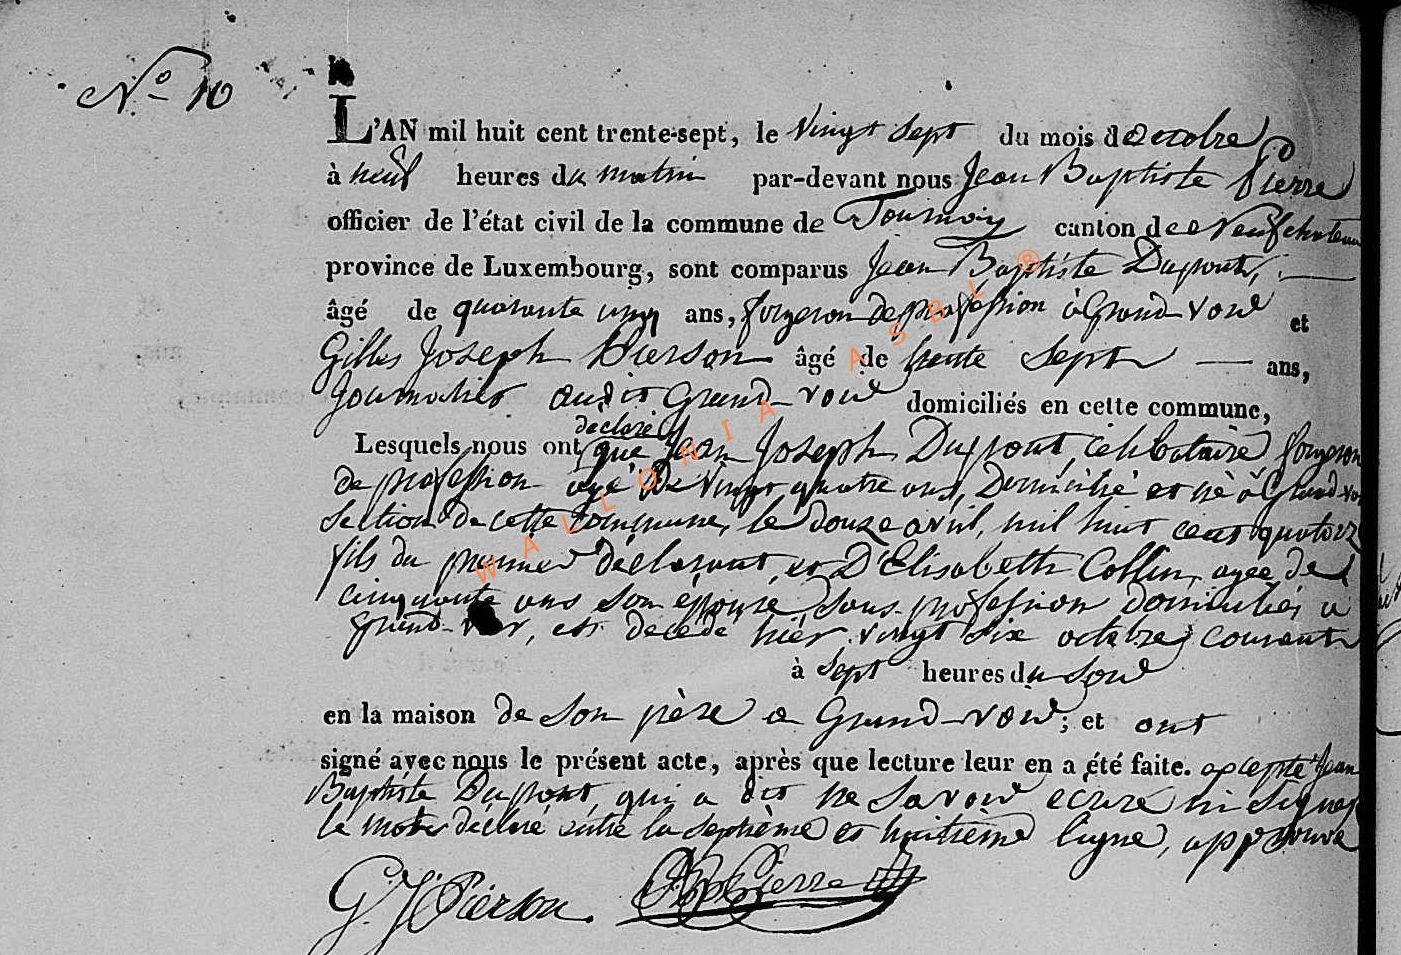 No 10
L'AN mil huit cent trente-sept, le vingt sept du mois d'octobre
à neuf heures du matin par-devant nous Jean Baptiste Pierre
officier de l'état civil de la commune de Tournay canton de Neufchateau
province de Luxembourg, sont comparus Jean Baptiste Dupont,
âgé de quarante ans, forgeron de profession à Grand-voir et
Gilles Joseph Pierson âgé de trente sept ans,
Journalier audit Grand-voir domiciliés en cette commune,
déclaré
Lesquels nous ont que Jean Joseph Dupont, célibataire forgeron
de profession agé de vingt quatre ans, Domicilié et né à Grand-voir
Section de cette commune, le douze avril, mil huit cent quatorze
fils du premier déclarant, et D'Elisabeth Collin, agée de
cinquante ans son épouse, sans profession domiciliés a
grand-voir, est decedé hier vingt six octobre courant
à sept heures du soir
en la maison de son père a Grand-voir; et ont
signé avec nous le présent acte, après que lecture leur en a été faite. excepté Jean
Baptiste Dupont, qui a dit ne savoir ecrire ni signer
le mot declaré entre la septième et huitième ligne, approuvé
G. J. Pierson. JB Pierre
WALLONIA ASBL ®